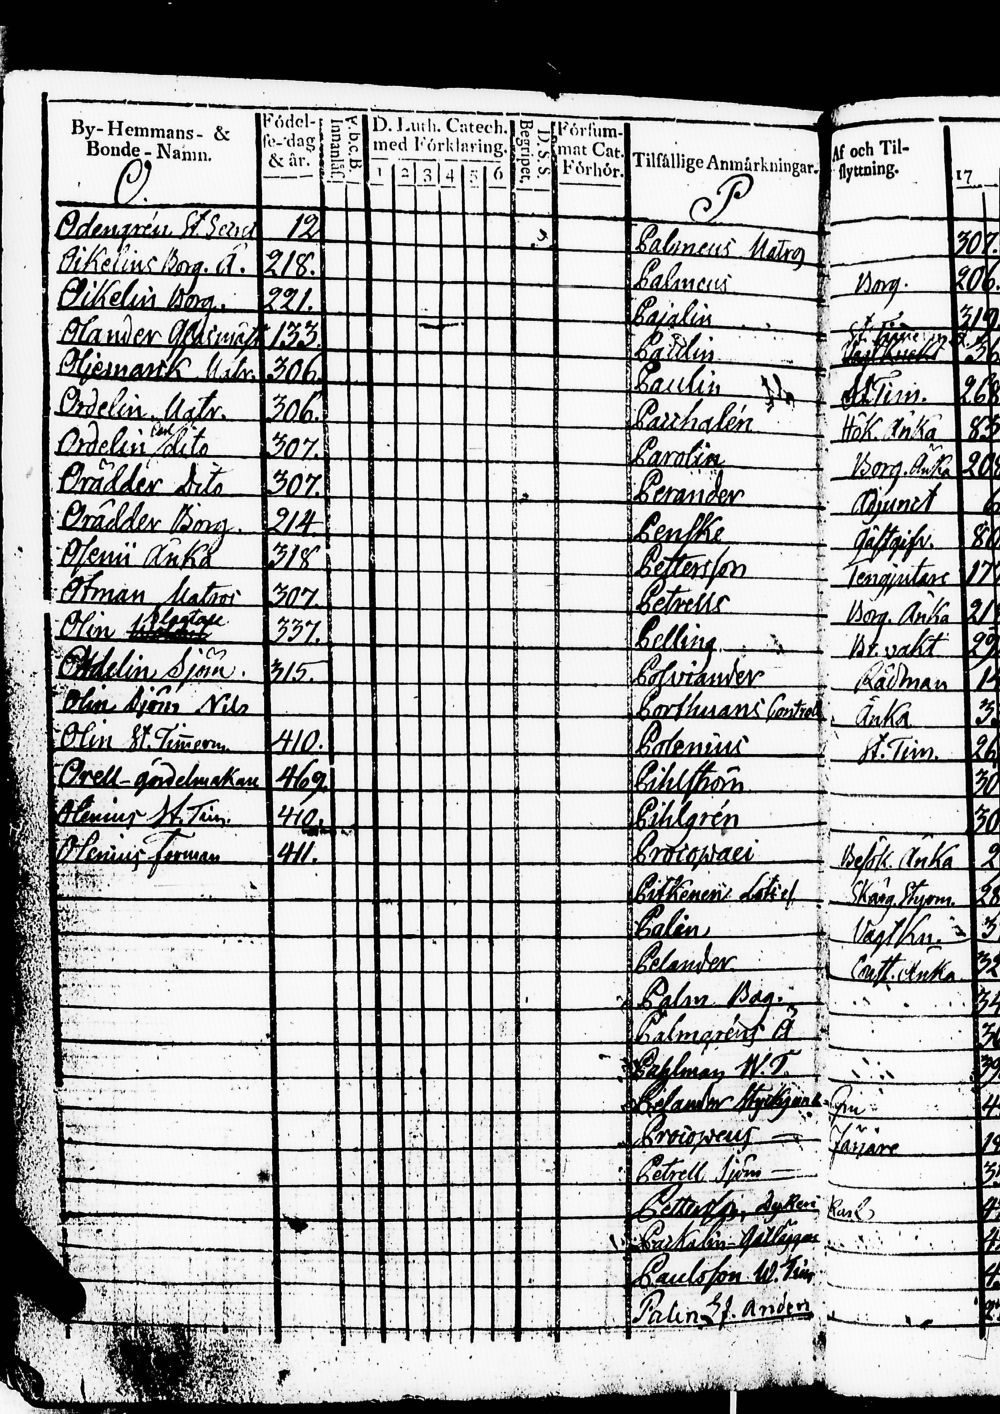 By-Hemmans- & Bonde-Namn.
Födel-se-dag & år.
A.b.c.B. Innanläs.
D. Luth. Catech. med Förklaring.
1 2 3 4 5 6
D. S. S. Begripet.
Försum-mat Cat. Förhör.
Tilfällige Anmärkningar.
Af och Til-flyttning.
17
O.
Odengrén St. 12
Oikelius Borg. Ä. 218.
Oikelin Borg. 221.
Olander 133
Oljemarck Matr. 306.
Ordelin Matr. 306.
Ordelin Carl dito 307.
Orädder Dito 307.
Orädder Borg. 214
Olenii Änka 318
Otman Matros 307.
Olin 337.
Ordelin Sjöm. 315.
Olin Sjöm Nils
Olin St. Timerm 410.
Orell-gördelmakare 469.
Olenius St. Tim. 410.
Olenius Forman 411.
P
Palmeus Matros 307.
Palmeus Borg. 206.
Pajalin 319
Paulin
Paulin St Tim. 268
Paschalén Hök. Änka 83
Parolin Borg. Änka 208
Perander Adjunct 6
Penske Gästgifv. 80
Pettersson 17
Petrells Borg. Änka 21
Pelling Br. vakt 29
Polviander Rådman 1
Porthuans Controll. Änka 3
Polenius St. Tim. 26
Pihlström 30
Pihlgrén 30
Procopaei Besök. Änka 2
Pitkenen Skärg. Styrm. 28
Palén Vagt Kn. 3
Pelander Änka 32
Palm Bag. 34
Palmgréns Ä 36
Pahlman W. T. 39
Pelander 4
Procopeus Färjare 18
Petrell Sjöm 3
Pettersson Karl 4
Parkalin 4
Paulsson W. Tim 4
Palin Anders 2